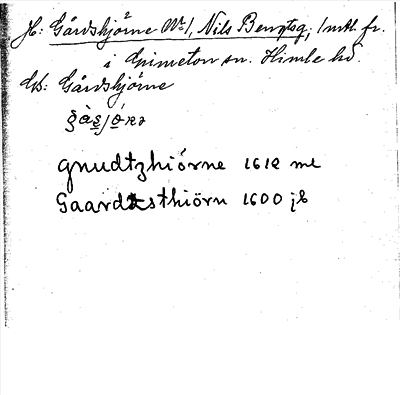 H: Gårdshjörne Nr 1, Nils Bengtsg., 1 mtl. fr.
i Grimeton sn. Himle hd
Us: Gårdshjörne
gnudtzhiórne 1612 ml
Gaardzsthiörn 1600 jb